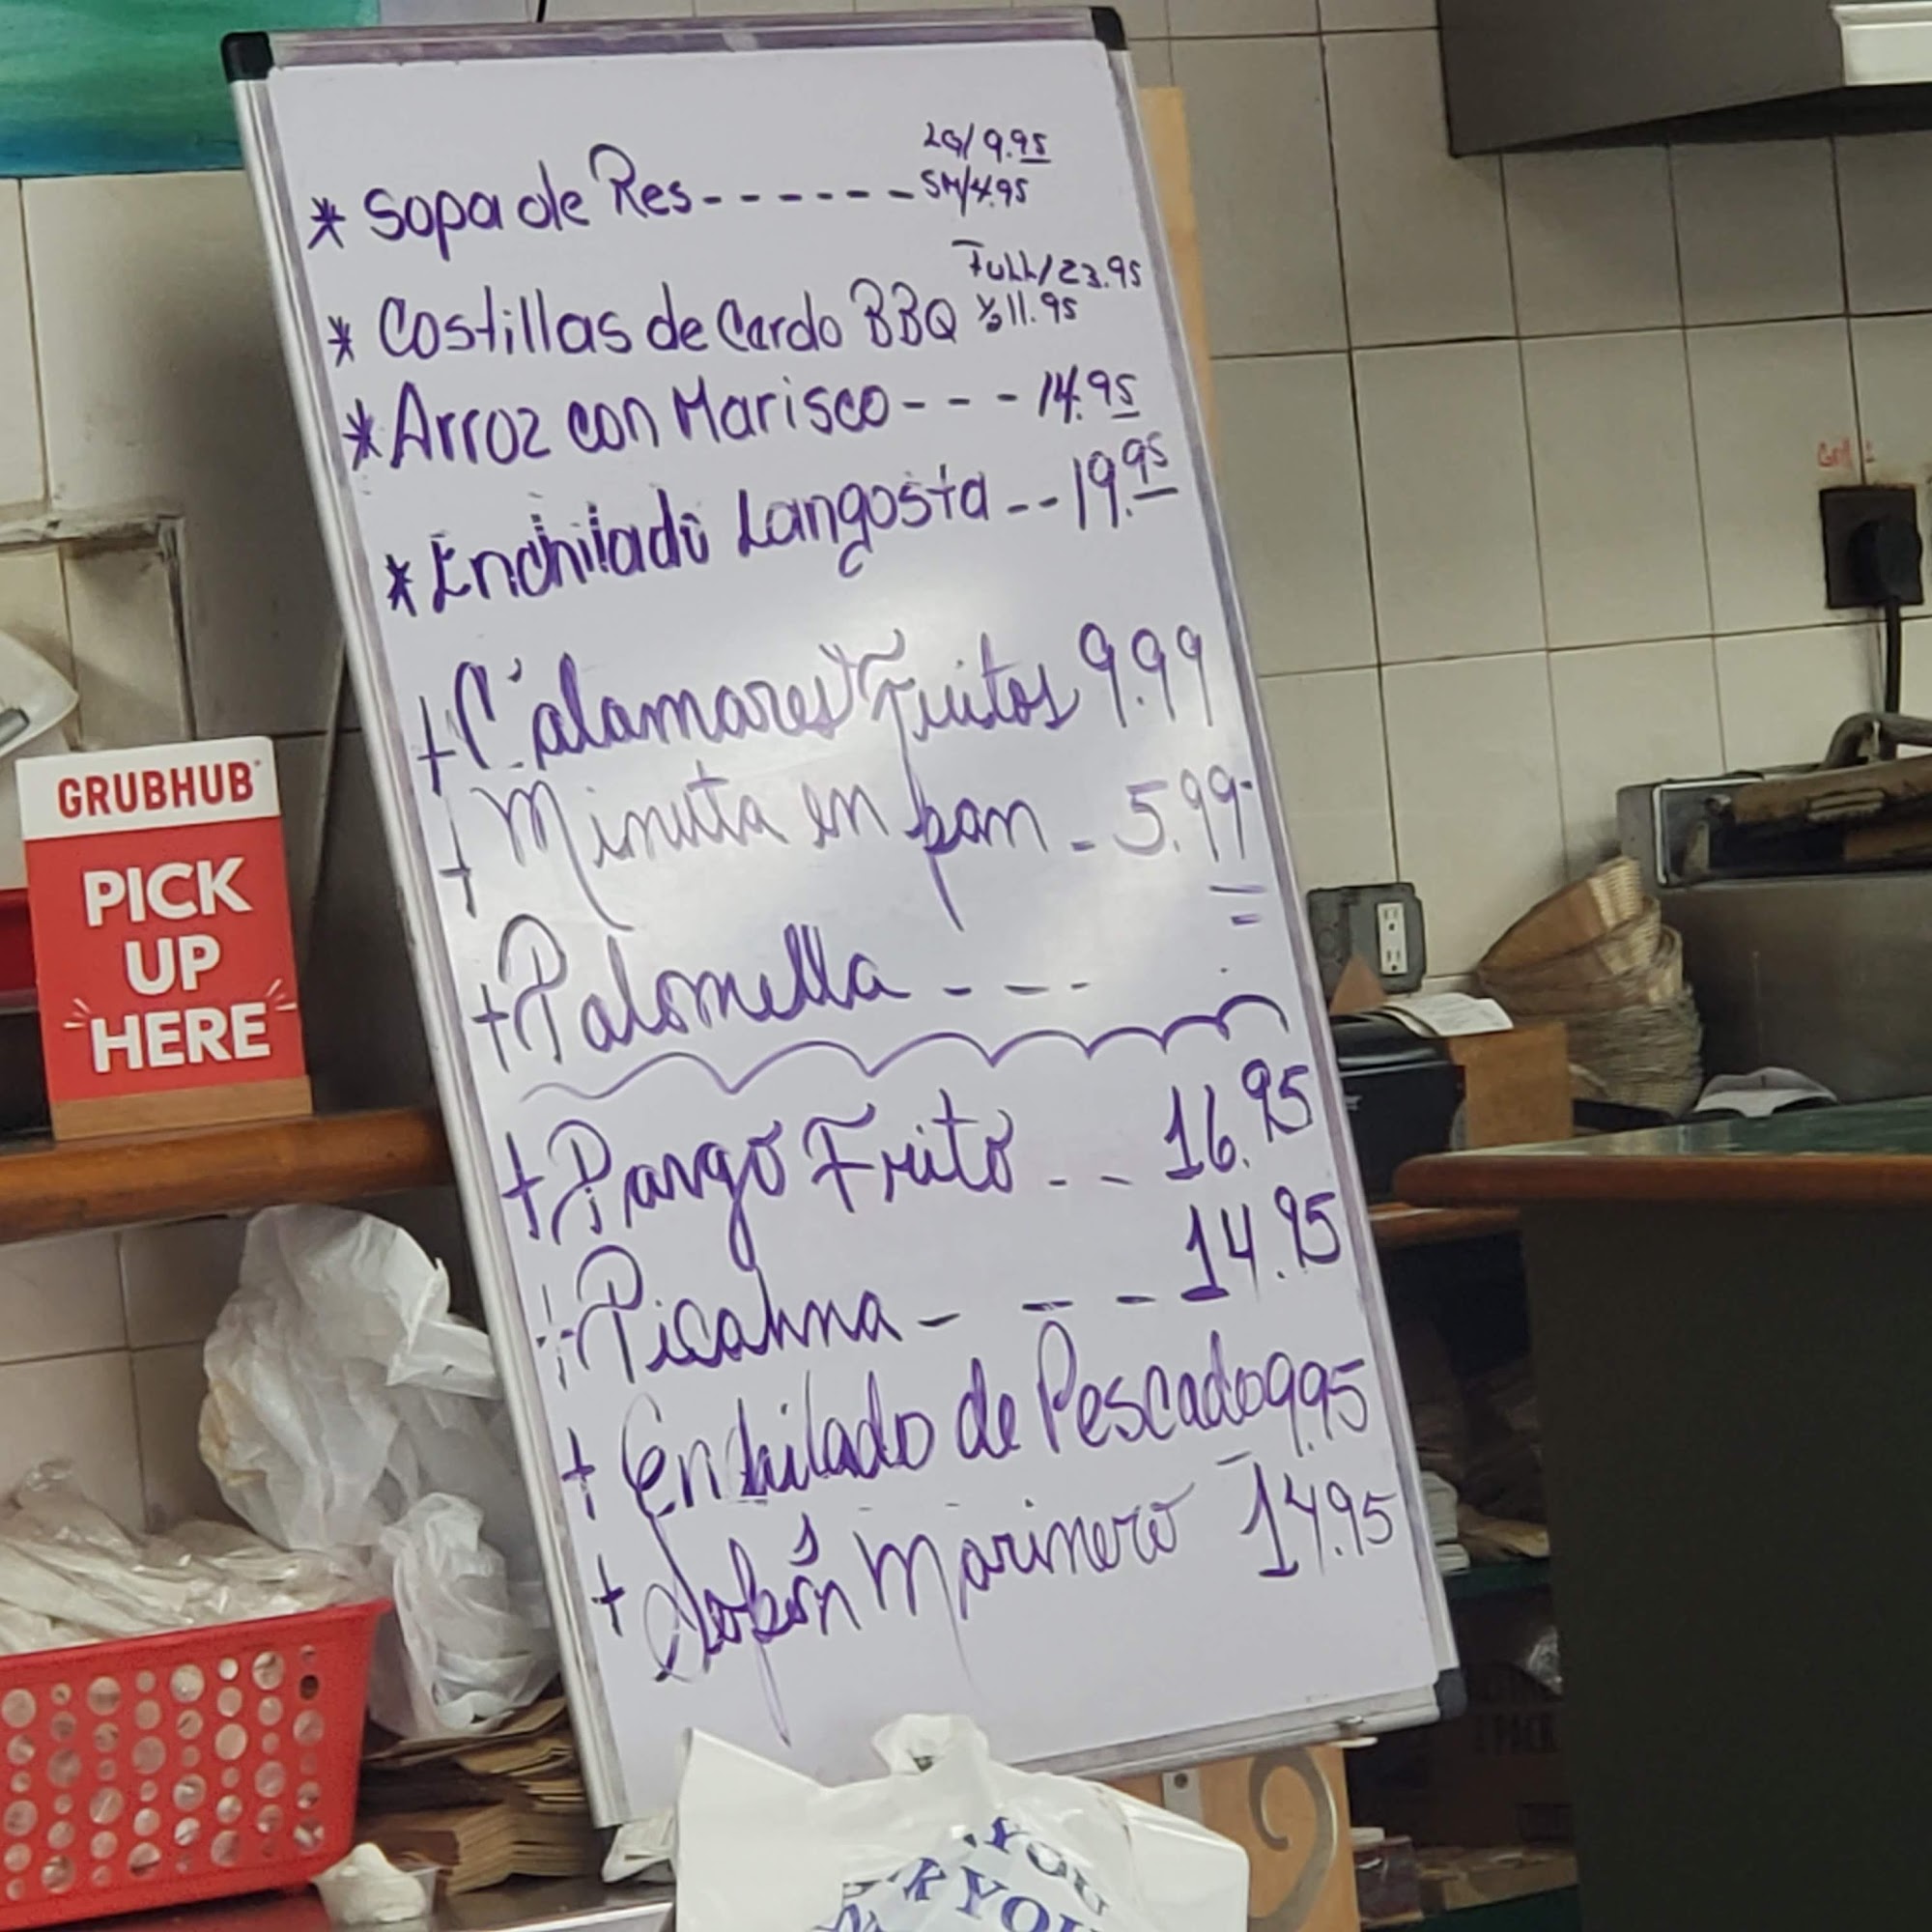 LG/ 9.95
* Sopa de Res------ SM/4.95
Full/23.95
* Costillas de Cardo BBQ ½ 11.95
* Arroz con Marisco --- 14.95
* Enchilado Langosta -- 19.95
+ Calamares Fritos 9.99
+ Minuta en pan - 5.99
+ Palomilla ---
+ Pargo Frito -- 16.95
+ Picahna - -- 14.95
+ Enchilado de Pescado 9.95
+ Sopón Marinero 14.95
GRUBHUB
PICK
UP
HERE
YOU
K YOU